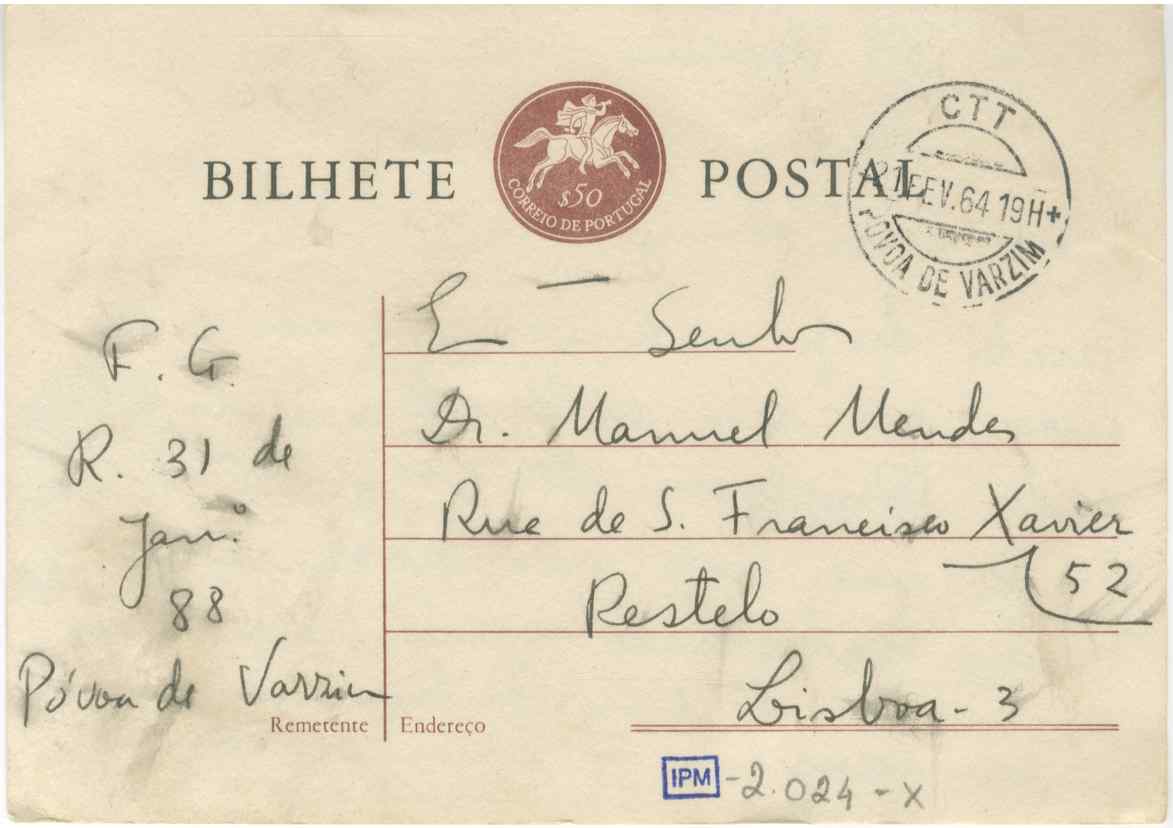 BILHETE POSTAL
$50
CORREIO DE PORTUGAL
CTT
FEV.64 19H+
POVOA DE VARZIM
F. G.
R. 31 de
Janº.
88
Póvoa de Varzim
Remetente
Senhor
Dr. Manuel Mendes
Rua de S. Francisco Xavier
52
Restelo
Lisboa - 3
Endereço
IPM - 2.024 - X